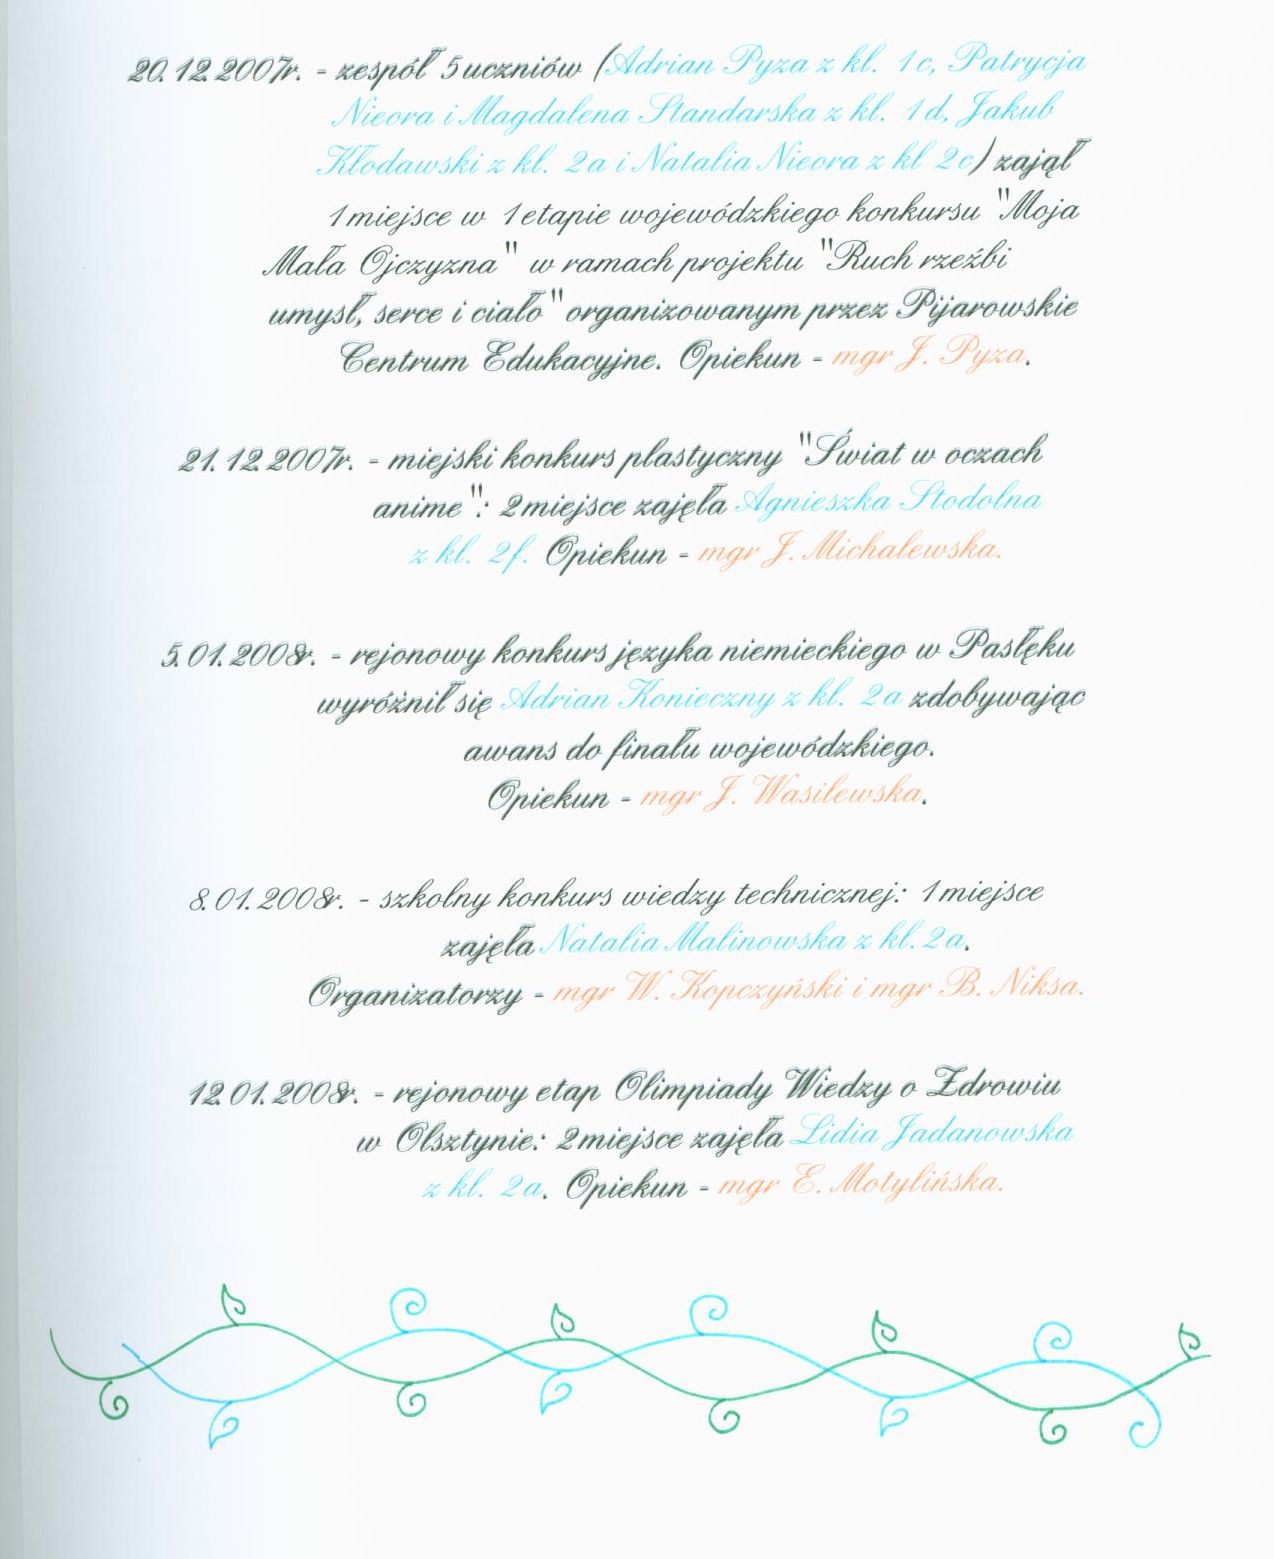 20.12.2007r. - zespół 5 uczniów (Adrian Pyza z kl. 1c, Patrycja
Nieora i Magdalena Standarska z kl. 1d, Jakub
Kłodawski z kl. 2a i Natalia Nieora z kl 2c) zajął
1 miejsce w 1 etapie wojewódzkiego konkursu "Moja
Mała Ojczyzna" w ramach projektu "Ruch rzeźbi
umysł, serce i ciało" organizowanym przez Pijarowskie
Centrum Edukacyjne. Opiekun - mgr J. Pyza.
21.12.2007r. - miejski konkurs plastyczny "Świat w oczach
anime": 2 miejsce zajęła Agnieszka Stodolna
z kl. 2f. Opiekun - mgr J. Michalewska.
5.01.2008r. - rejonowy konkurs języka niemieckiego w Pasłęku
wyróżnił się Adrian Konieczny z kl. 2a zdobywając
awans do finału wojewódzkiego.
Opiekun - mgr J. Wasilewska.
8.01.2008r. - szkolny konkurs wiedzy technicznej: 1 miejsce
zajęła Natalia Malinowska z kl. 2a.
Organizatorzy - mgr W. Kopczyński i mgr B. Niksa.
12.01.2008r. - rejonowy etap Olimpiady Wiedzy o Zdrowiu
w Olsztynie: 2 miejsce zajęła Lidia Jadanowska
z kl. 2a. Opiekun - mgr E. Motylińska.